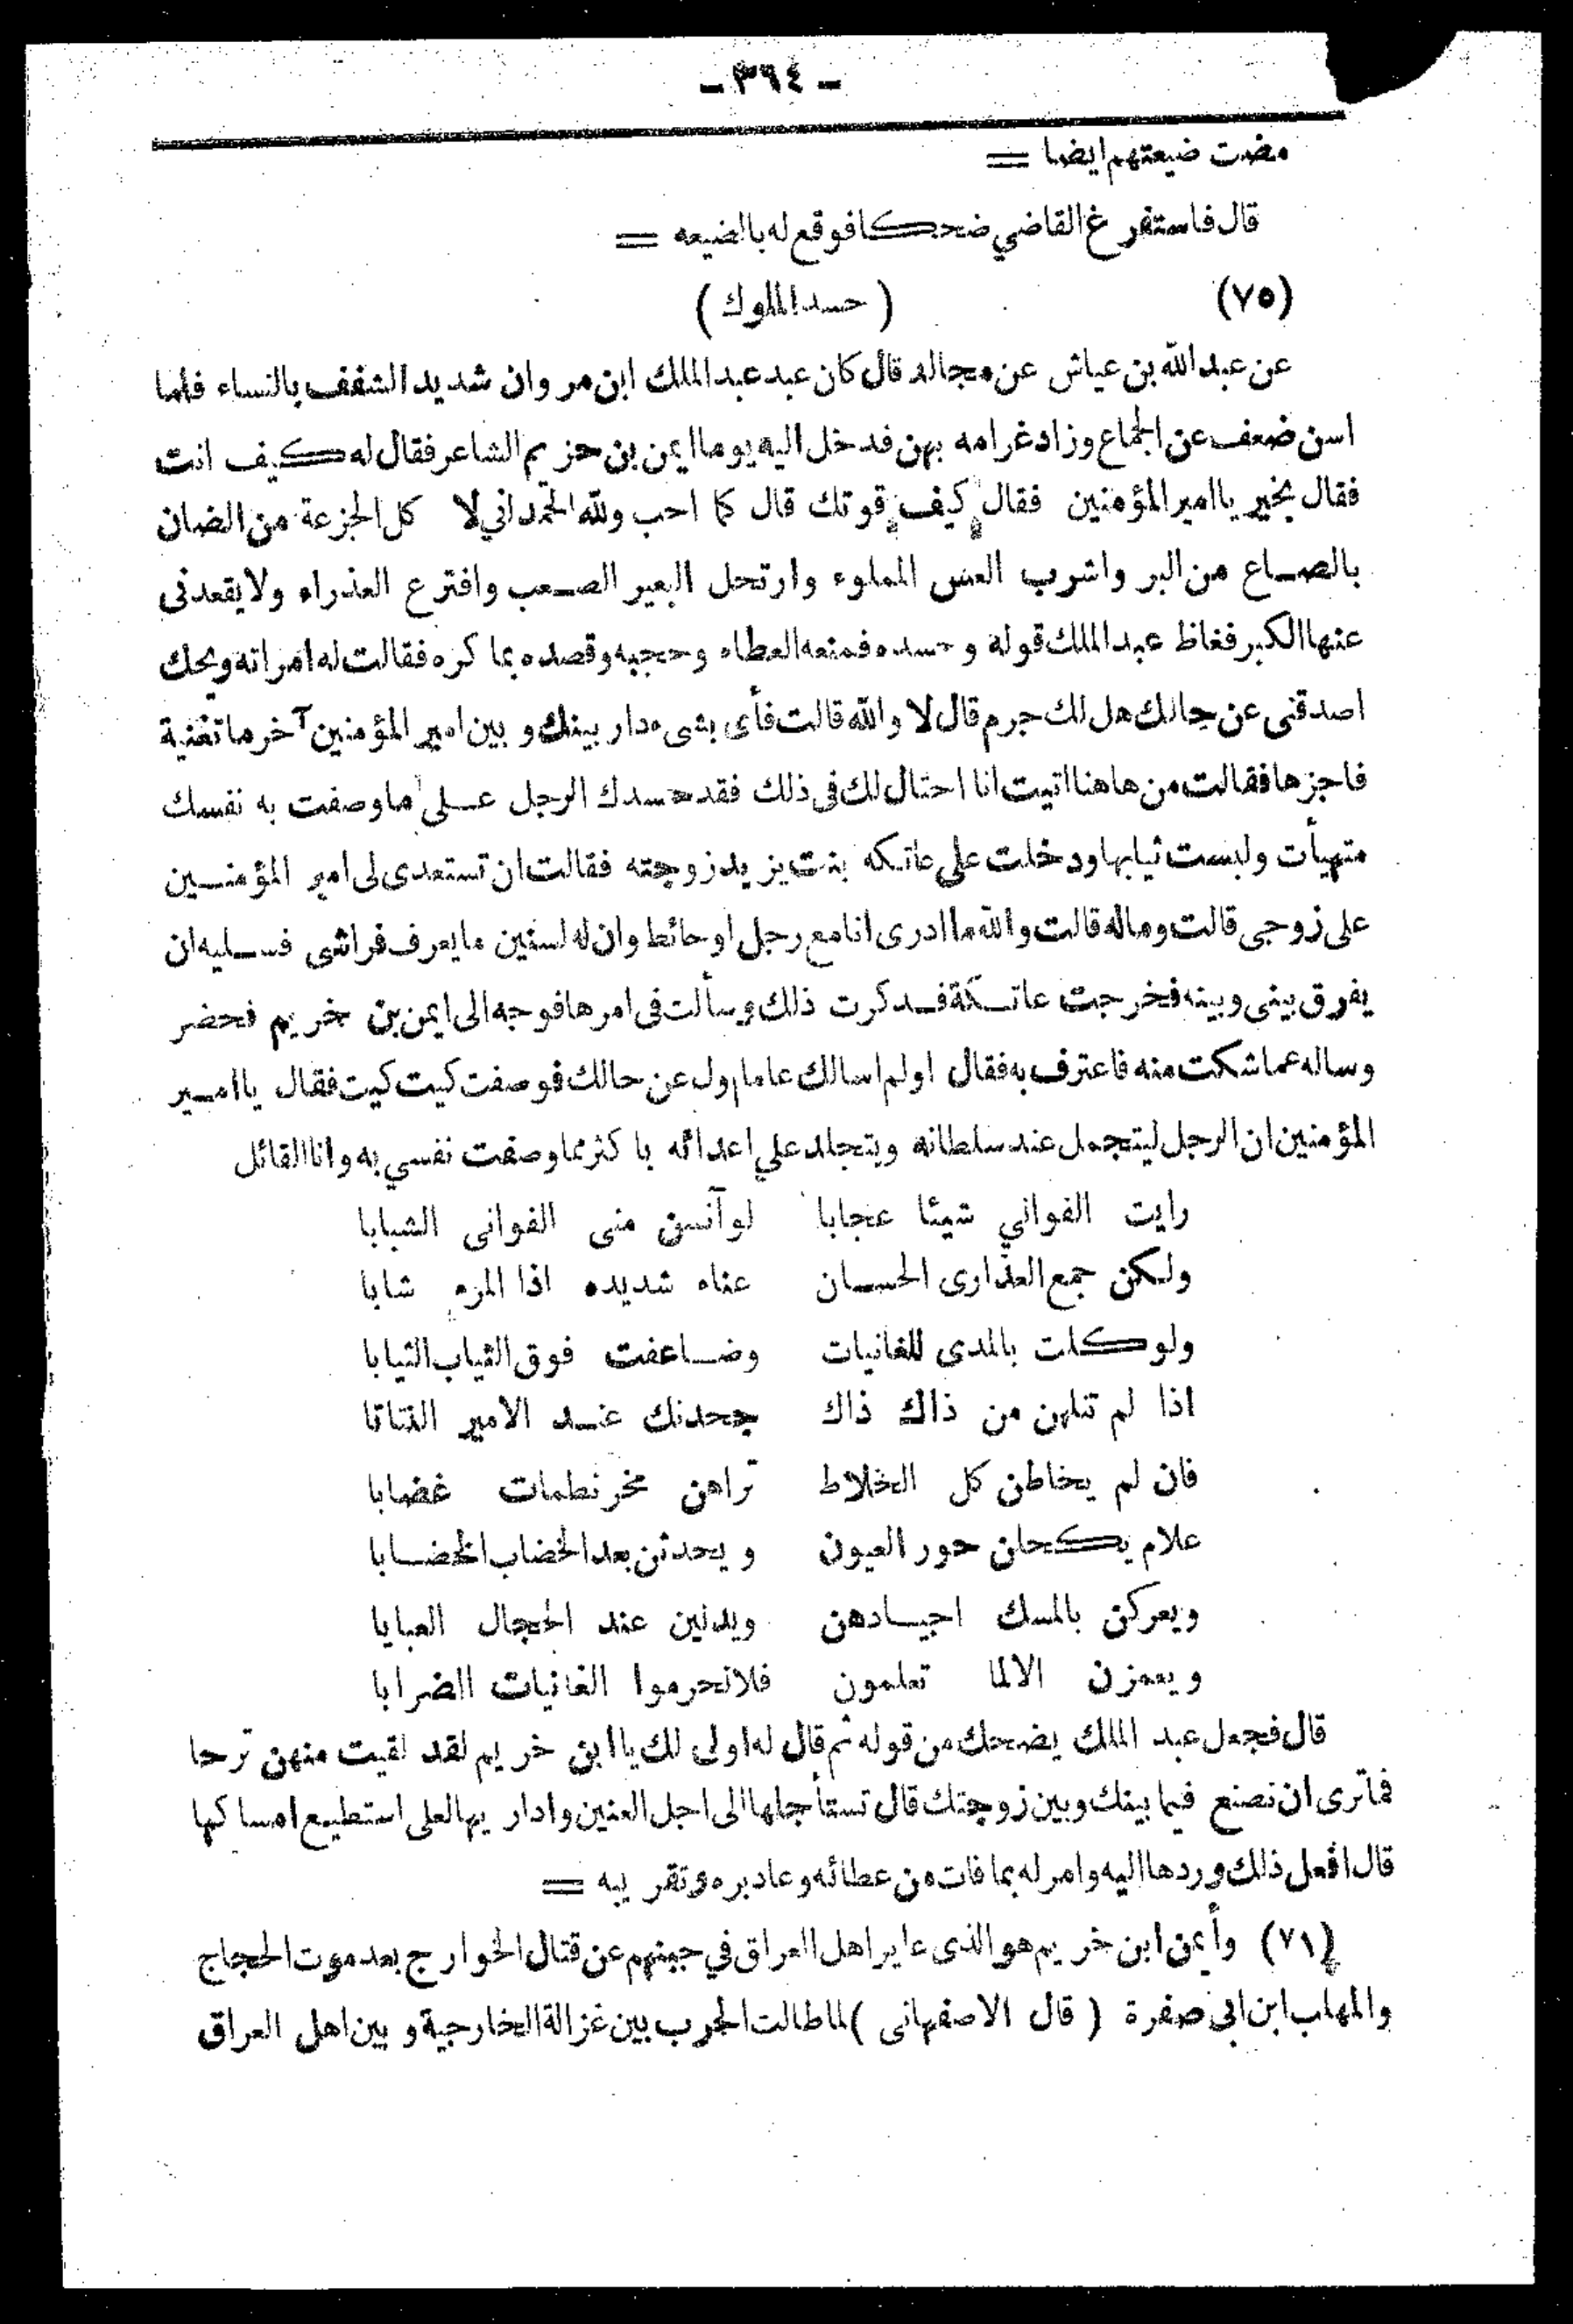 - ٣٦٤ -
مضت ضيعتهم ايضا =
قال فاستفرغ القاضي ضحكا فوقع له بالضيعه =
(٧٥) ( حسد الملوك )
عن عبد الله بن عياش عن مجالد قال كان عبد عبد الملك ابن مروان شديد الشغف بالنساء فلما
اسن ضعف عن الجماع وزاد غرامه بهن فدخل اليه يوما ايمن بن حزيم الشاعر فقال له كيف انت
فقال بخير يا امير المؤمنين فقال كيف قوتك قال كما احب ولله الحمد اني لا كل الجزعة من الضان
بالصاع من البر واشرب العس المملوء وارتحل البعير الصعب وافترع العذراء ولا يقعدنى
عنها الكبر فغاظ عبد الملك قوله وحسده فمنعه العطاء وحجبه وقصده بما كره فقالت له امراته ويحك
اصدقنى عن حالك هل لك جرم قال لا والله قالت فأى بشىء دار بينك وبين امير المؤمنين آخر ما تغنية
فاجزها فقالت من هاهنا اتيت انا احتال لك فى ذلك فقد حسدك الرجل على ما وصفت به نفسك
متهيأت ولبست ثيابها ودخلت على عاتكه بنت يزيد زوجته فقالت ان تستعدى لى امير المؤمنين
على زوجى قالت وماله قالت والله ما ادرى انا مع رجل او حائط وان له لسنين ما يعرف فراشى فسليه ان
يفرق بينى وبينه فخرجت عاتكة فدكرت ذلك وسألت فى امرها فوجه الى ايمن بن خريم فحضر
وساله عما شكت منه فاعترف به فقال اولم اسالك عاما اول عن حالك فوصفت كيت كيت فقال يا امير
المؤمنين ان الرجل ليتجمل عند سلطانه ويتجلد علي اعدائه با كثر مما وصفت نفسي به وانا القائل
رايت الفواني شيئا عجابا لو آنسن منى الفوانى الشبابا
ولكن جمع العذارى الحسان عناه شديده اذا المرء شابا
ولو كلت بالمدى للغانيات وضاعفت فوق الثياب الثيابا
اذا لم تنلهن من ذاك ذاك جحدنك عند الامير الفتاتا
فان لم يخاطن كل الخلاط تراهن مخرنطمات غضابا
علام يكحلن حور العيون ويحدثن بعد الخضاب الخضابا
ويعركن بالمسك اجيادهن ويدنين عند الحجال العبايا
ويعمزن الالما تعلمون فلا تحرموا الغانيات الضرابا
قال فجعل عبد الملك يضحك من قوله ثم قال له اولى لك يا ابن خريم لقد لقيت منهن ترحا
فما ترى ان نصنع فيما بينك وبين زوجتك قال تستأجلها الى اجل العنين وادار يها لعلى استطيع امساكها
قال افعل ذلك وردها اليه وامر له بما فات من عطائه وعاد بره وتقريبه =
(٧١) وأيمن ابن خريم هو الذى عاير اهل العراق في جبنهم عن قتال الخوارج بعد موت الحجاج
والمهلب ابن ابى صفرة ( قال الاصفهانى ) لما طالت الحرب بين غزالة الخارجية وبين اهل العراق